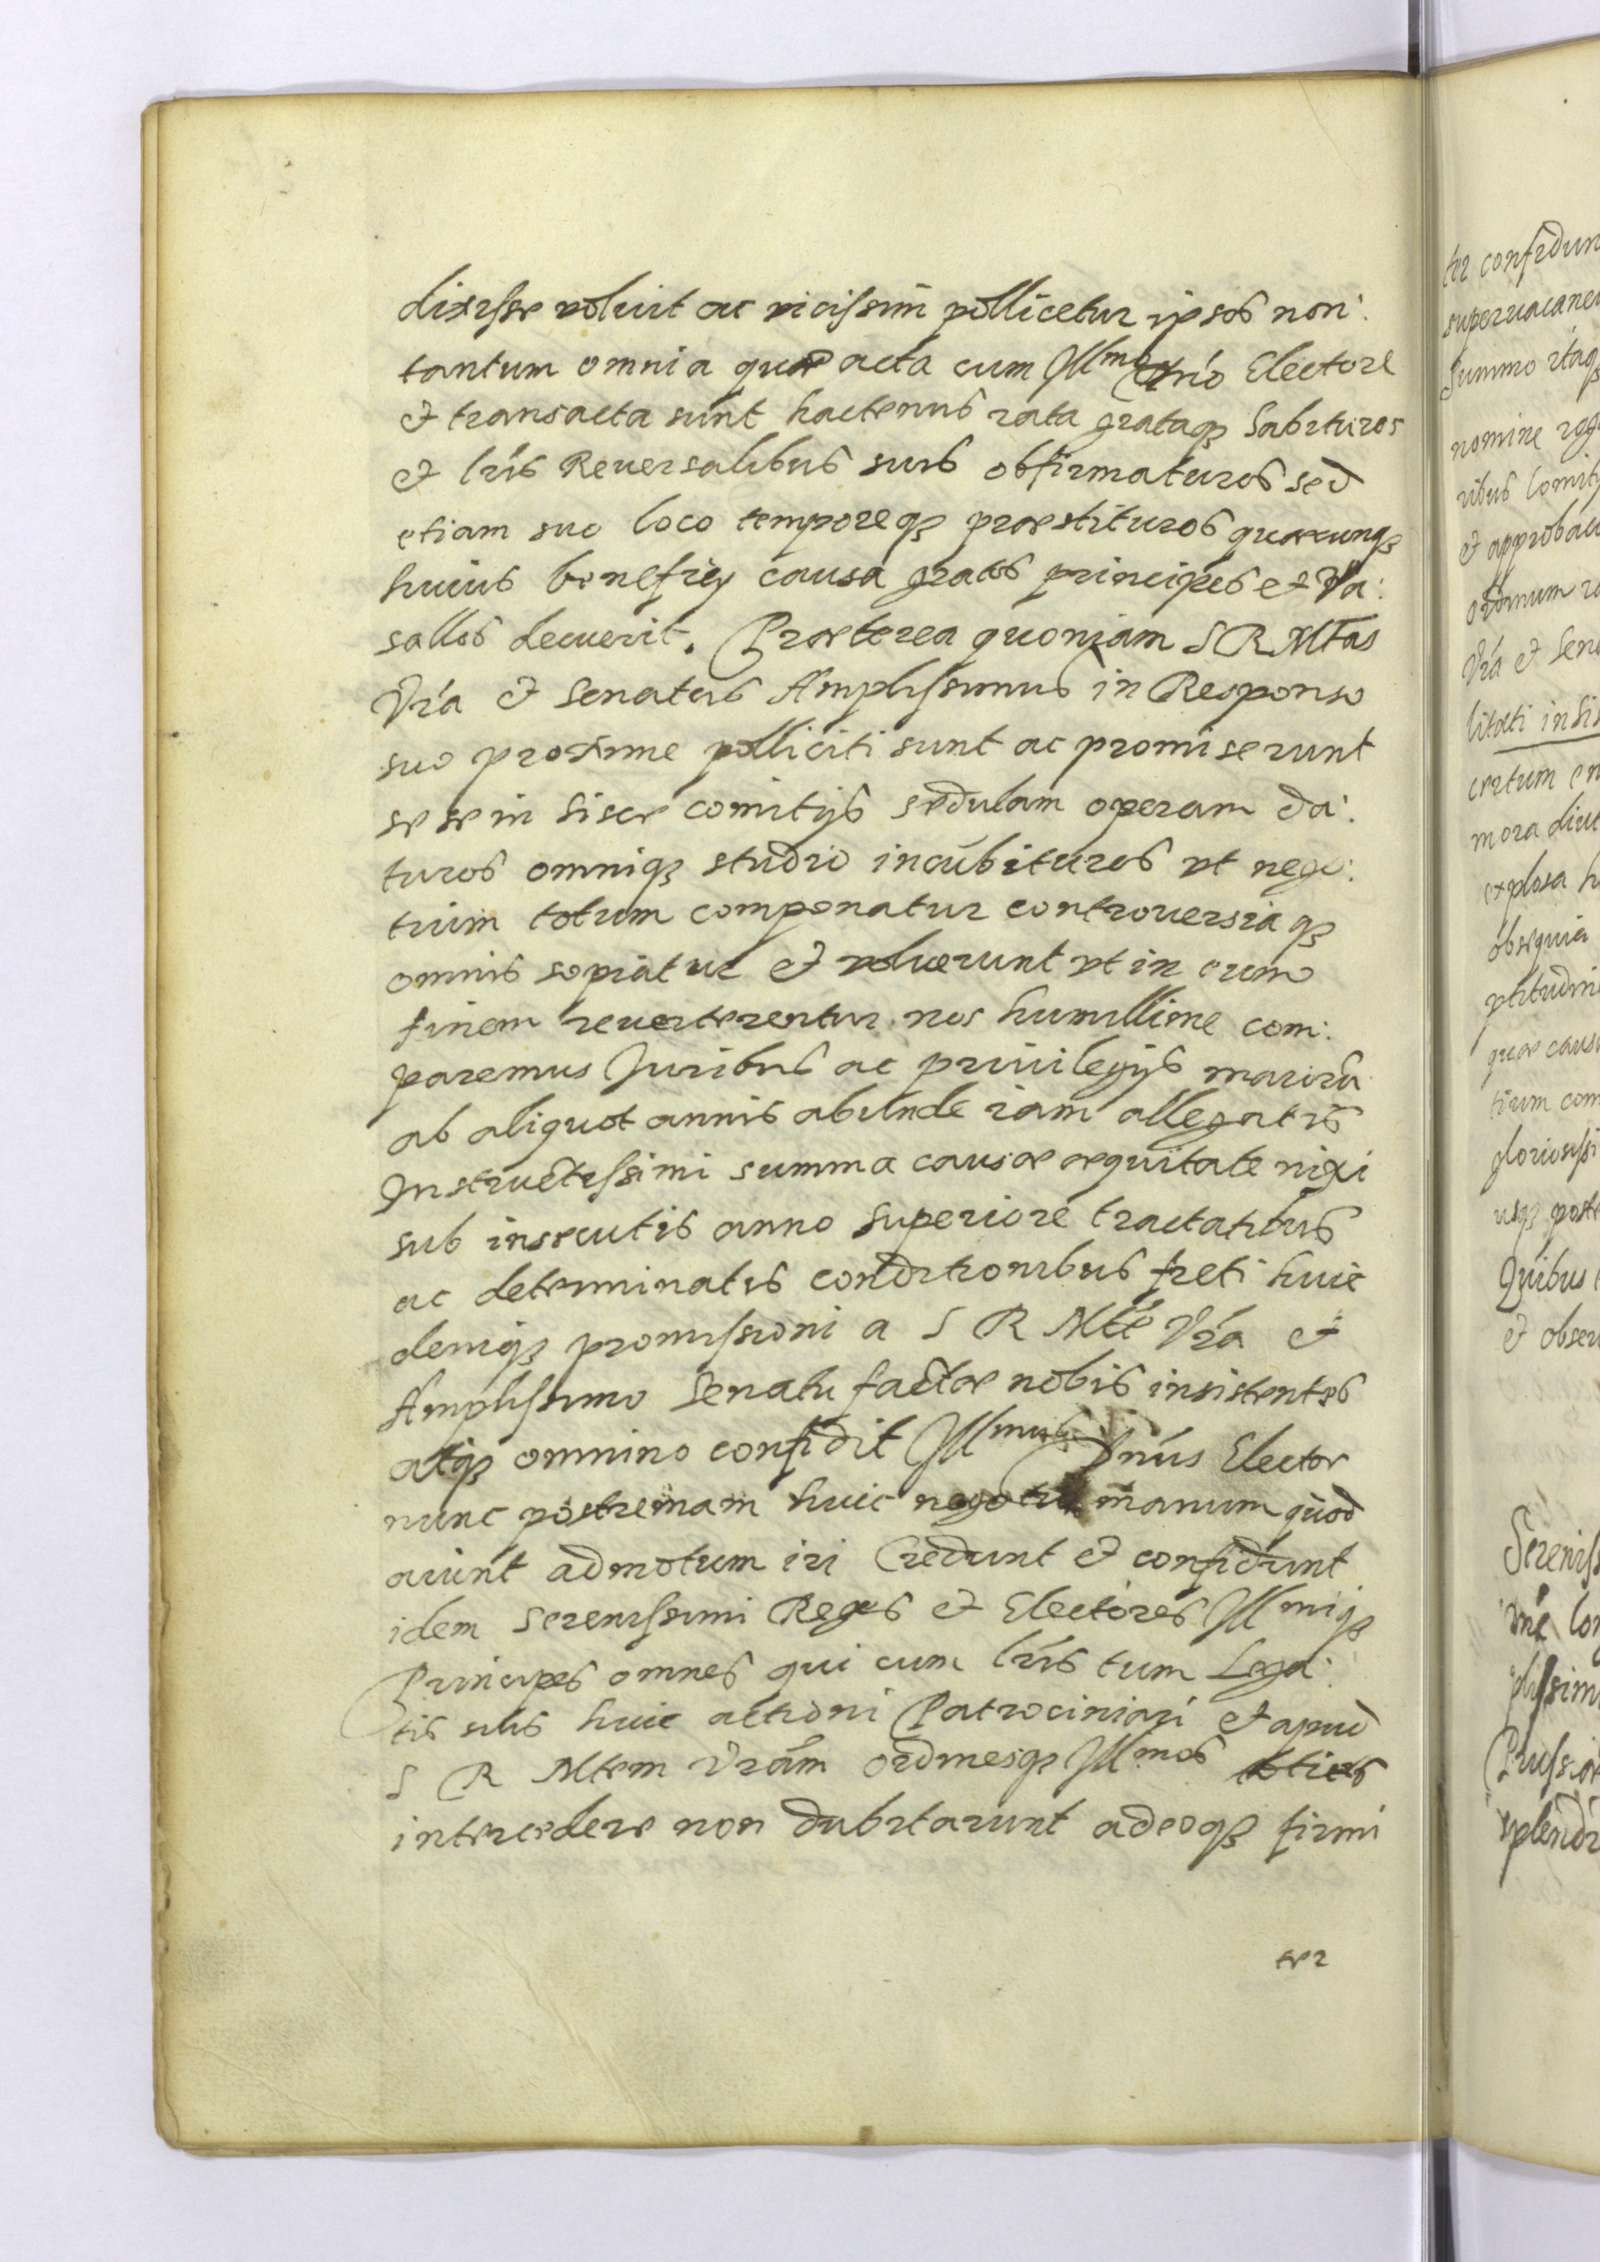 dixisse voluit ac vicissim pollicetur ipsos non
tantum omnia quae acta cum Illmo Dno Electore
et transacta sunt hactenus rata grataq habituros
et lris Reuersalibus suis obfirmaturos sed
etiam suo loco temporeq praestituros quaecunq
huius beneficij causa gratos principes et Va:
sallos decuerit. Praeterea quoniam S R Mtas
Vra et Senatus Amplissimus in Responso
suo proxime polliciti sunt ac promiserunt
sese in hisce comitijs sedulam operam da:
turos omniq studio incubituros vt nego:
tium totum componatur controuersiaq
omnis sopiatur et voluerunt vt in eum
finem reuerterentur nos humillime com:
paremus Juribus ac priuilegijs
ab aliquot annis abunde iam allegatis
Instructissimi summa causae aequitate nixi
sub insecutis anno superiore tractatibus
ac determinatis conditionibus freti huic
deniq promissioni a S R Mte Vra et
Amplissimo Senatu factae nobis insistentes
atq omnino confidit Illmus Dnus Elector
nunc postremam huic negotio manum quod
aiunt admotum iri Credunt et confidunt
idem Serenissimi Reges et Electores Illmiq
Principes omnes qui cum lris tum Lega:
tis suis huic actioni Patrociniari et apud
S R Mtem Vram Ordinesq Illmos toties
intercedere non dubitarunt adeoq firmi
ter
ter confidunt
superuacane
Summo itaq
nomine
ribus Comity
et approbau
ordinum
Vra et Sena
litati insis
certum en
mora diut
explosa h
obsequia
ptitudini
quae caus
tium com
gloriosissi
usq poste
Quibus
et obser
Sereniss
plissim
Prussiae
splendi